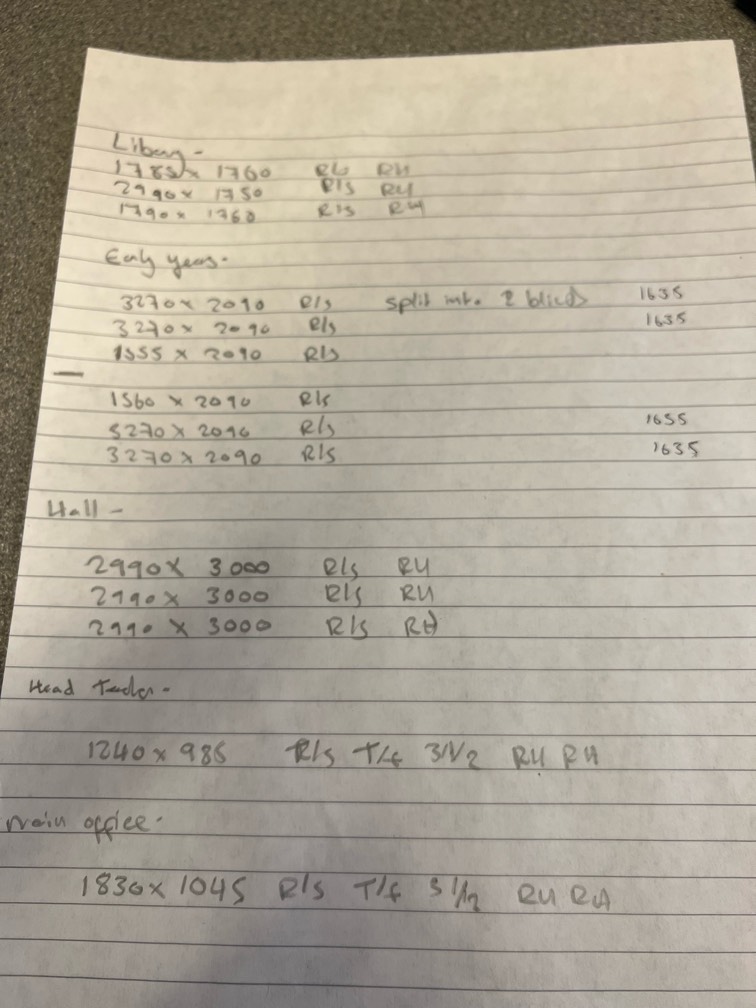 Libary -
1785 x 1760 R/s RH
2990 x 1750 R/s RH
1790 x 1760 R/s RH
Early years -
3270 x 2090 R/s split into 2 blinds 1635
3270 x 2090 R/s 1635
1555 x 2090 R/s
1560 x 2090 R/s
3270 x 2090 R/s 1655
3270 x 2090 R/s 1635
Hall -
2990 x 3000 R/s RH
2990 x 3000 R/s RH
2990 x 3000 R/s RH
Head Teacher -
1240 x 985 R/s T/f 3 1/2 RH RH
Main office -
1830 x 1045 R/s T/f 3 1/2 RH RH